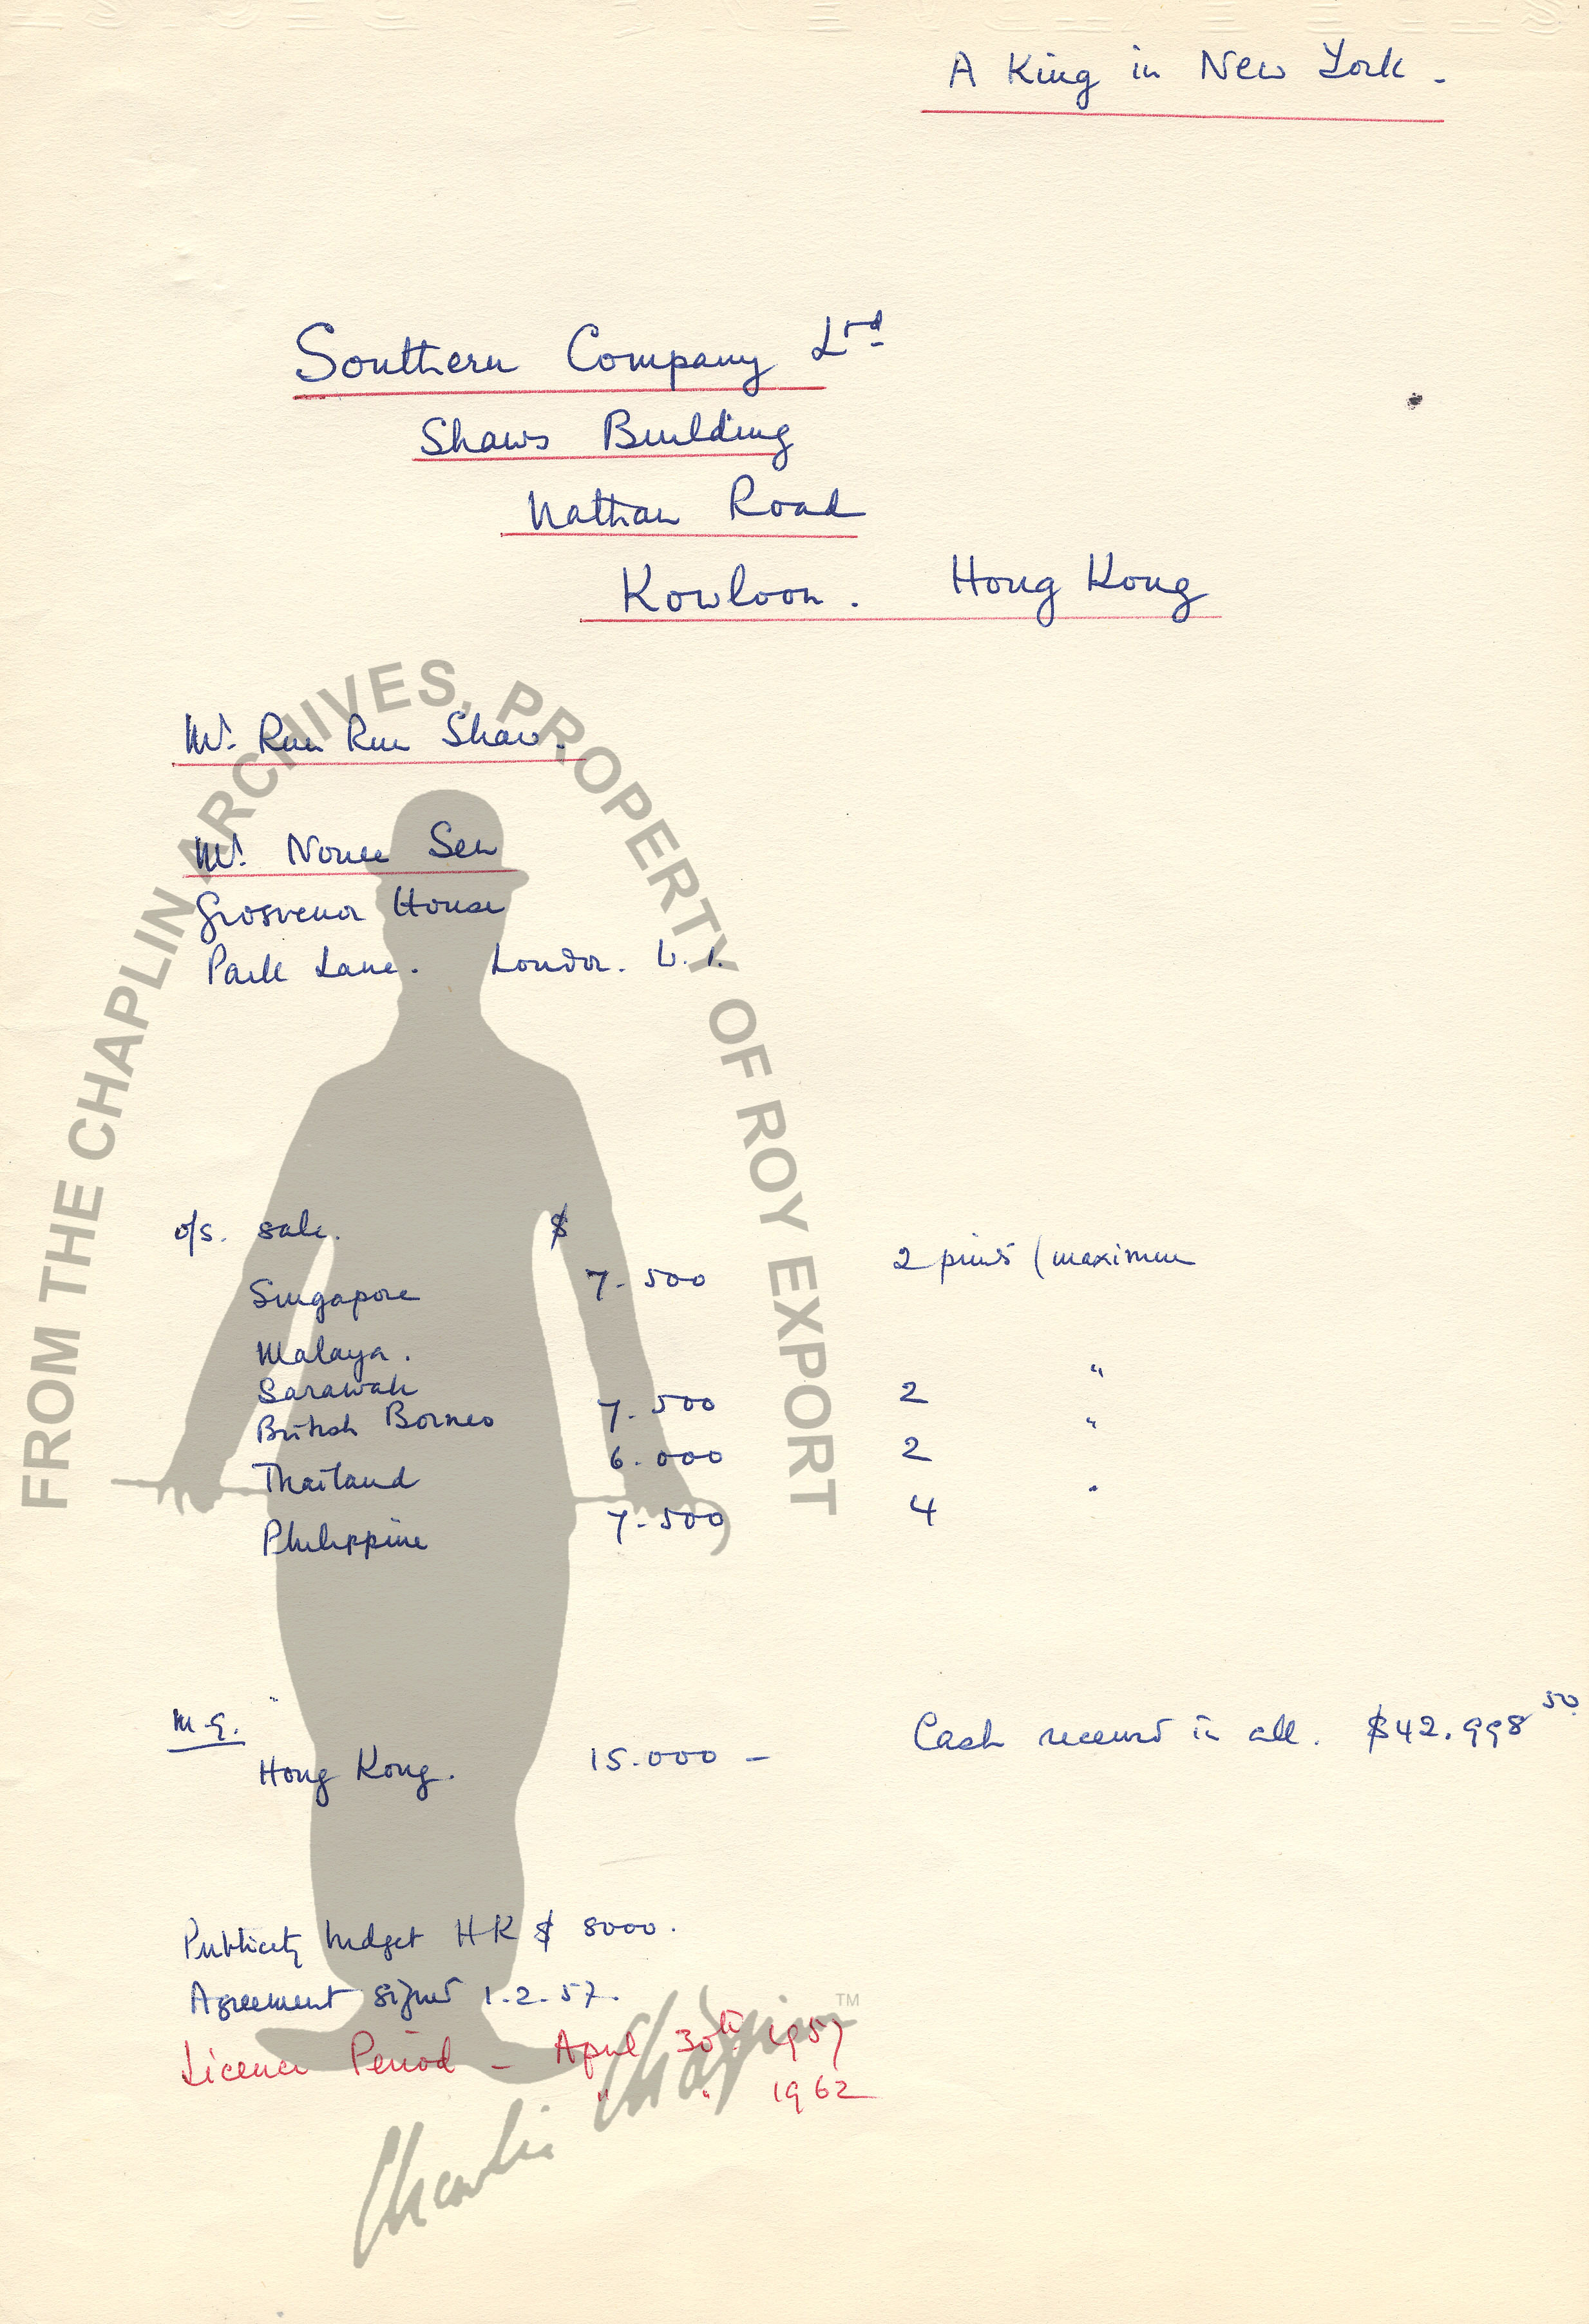 A King in New York -
Southern Company Ltd
Shaws Building
Nathan Road
Kowloon. Hong Kong
Mr. Run Run Shaw.
Mr. Nonee Sen
Grosvenor House
Park Lane. London. W.1.
o/s. sale. $
Singapore 7-500 2 prints (maximum
Malaya.
Sarawak "
British Borneo 7-500 2
Thailand 6.000 2 "
Philippine 7-500 4 "
M.G. "
Hong Kong. 15.000 - Cash received in all. $42.998 50
Publicity budget HK $ 8000.
Agreement signed 1-2-57.
Licence Period - April 30th 1957
" " 1962
FROM THE CHAPLIN ARCHIVES, PROPERTY OF ROY EXPORT
Charlie Chaplin TM